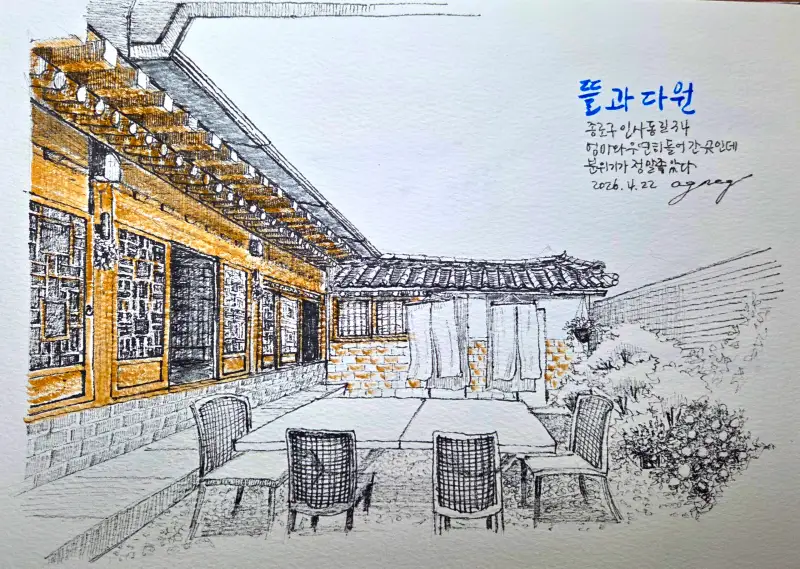 뜰과다원
종로구 인사동길34
엄마와 우연히 들어간 곳인데
분위기가 정말좋았다
2026. 4. 22